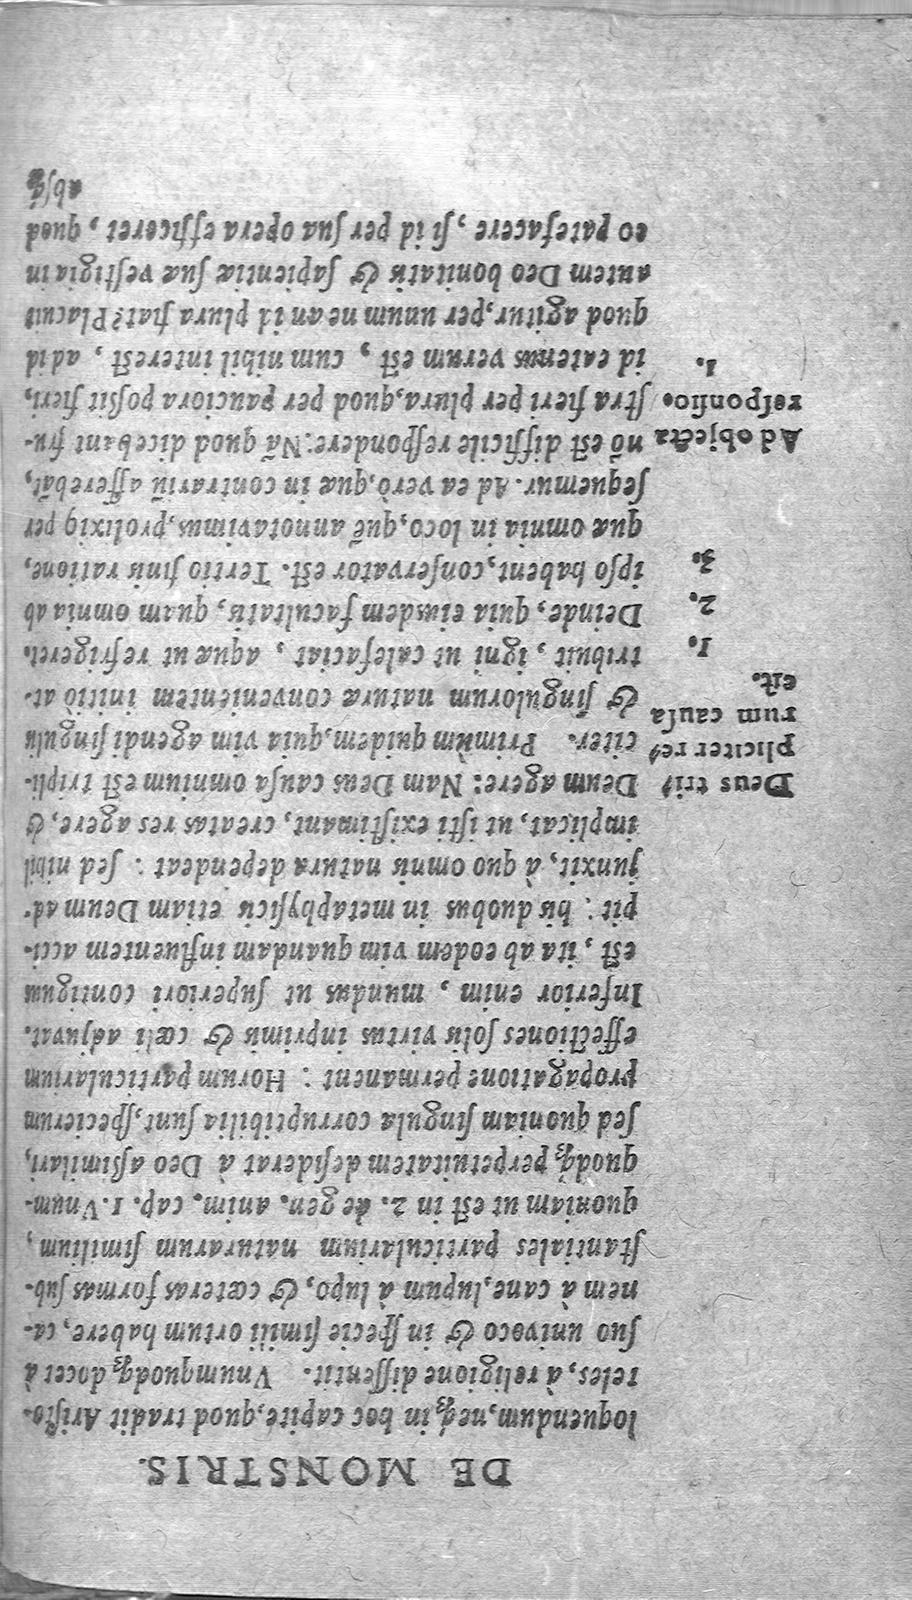 DE MONSTRIS.
loquendum, neq́ꝫ in hoc capite, quod tradit Aristo-
teles, à religione dissentit. Vnumquodqꝫ docet à
suo univoco & in specie simili ortum habere, ca-
nem à cane, lupum à lupo, & cœteras formas sub-
stantiales particularium naturarum similium,
quoniam ut est in 2. de gen. anim. cap. 1. Vnum-
quodqꝫ perpetuitatem desiderat à Deo assimilari,
sed quoniam singula corruptibilia sunt, specierum
propagatione permanent: Horum particularium
effectiones solis virtus inprimis & cœli adjuvat.
Inferior enim, mundus ut superiori contiguus
est, ita ab eodem vim quandam influentem acci-
pit: his duobus in metaphysicis etiam Deum ad-
junxit, à quo omnis natura dependeat: sed nihil
implicat, ut isti existimant, creatas res agere, &
Deus tri-
Deum agere: Nam Deus causa omnium est tripli-
pliciter re-
citer. Primùm quidem, quia vim agendi singulis
rum causa
& singulorum naturæ convenientem initiò at-
est.
1.
tribuit, igni ut calefaciat, aquæ ut refrigeret.
2.
Deinde, quia eiusdem facultatis, quam omnia ab
3.
ipso habent, conservator est. Tertio finis ratione,
quæ omnia in loco, quē annotavimus, prolixiꝰ per
sequemur. Ad ea verò, quæ in contrariū afferebāt,
Ad objecta
nō est difficile respondere: Nā quod dicebant fru-
responsio.
stra fieri per plura, quod per pauciora possit fieri,
1.
id eatenus verum est, cum nihil interest, ad id
quod agitur, per unum ne an id plura fiat? Placuit
autem Deo bonitatis & sapientiæ suæ vestigia in
eo patefacere, si id per sua opera efficeret, quod
absq́ꝫ